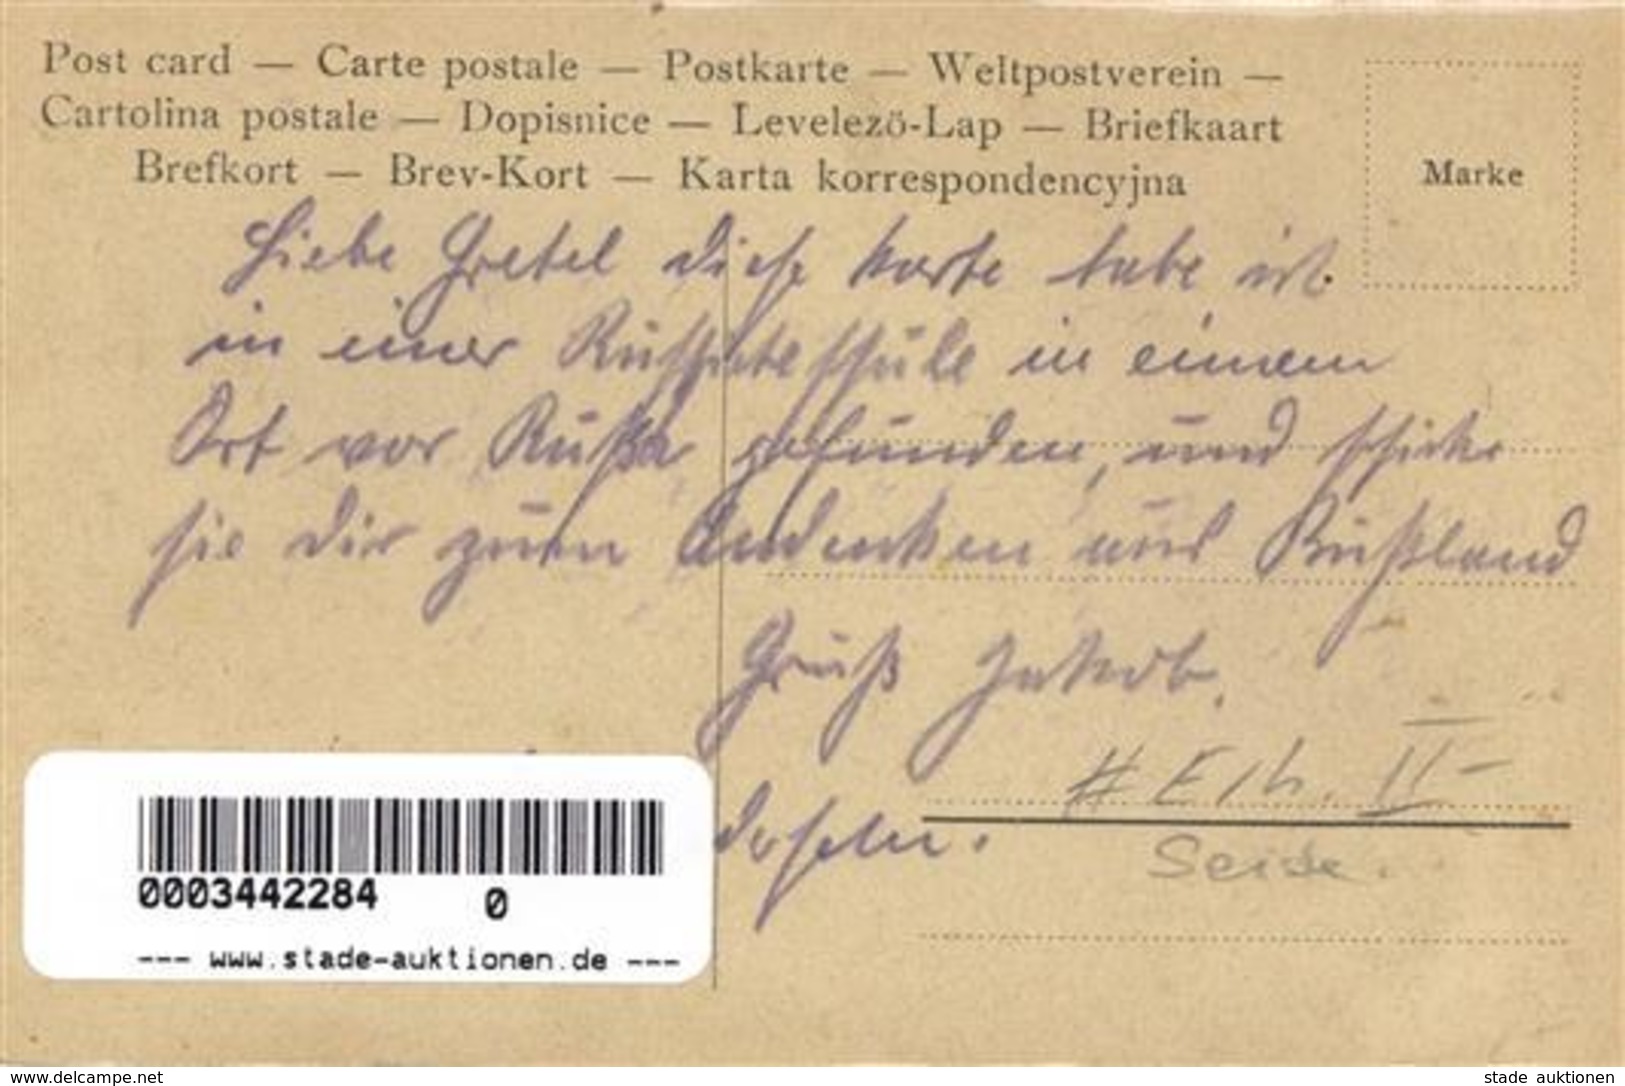 Post card — Carte postale — Postkarte — Weltpostverein —
Cartolina postale — Dopisnice — Levelezö-Lap — Briefkaart
Brefkort — Brev-Kort — Karta korrespondencyjna
Marke
Liebe Gretel diese Karte habe ich
in einer in einem
Ort vor gefunden, und schicke
sie dir zum Andenken aus Rußland
Gruß Jakob.
# E/h. II-
Seide.
0003442284 0
--- www.stade-auktionen.de ---
www.delcampe.net
stade auktionen